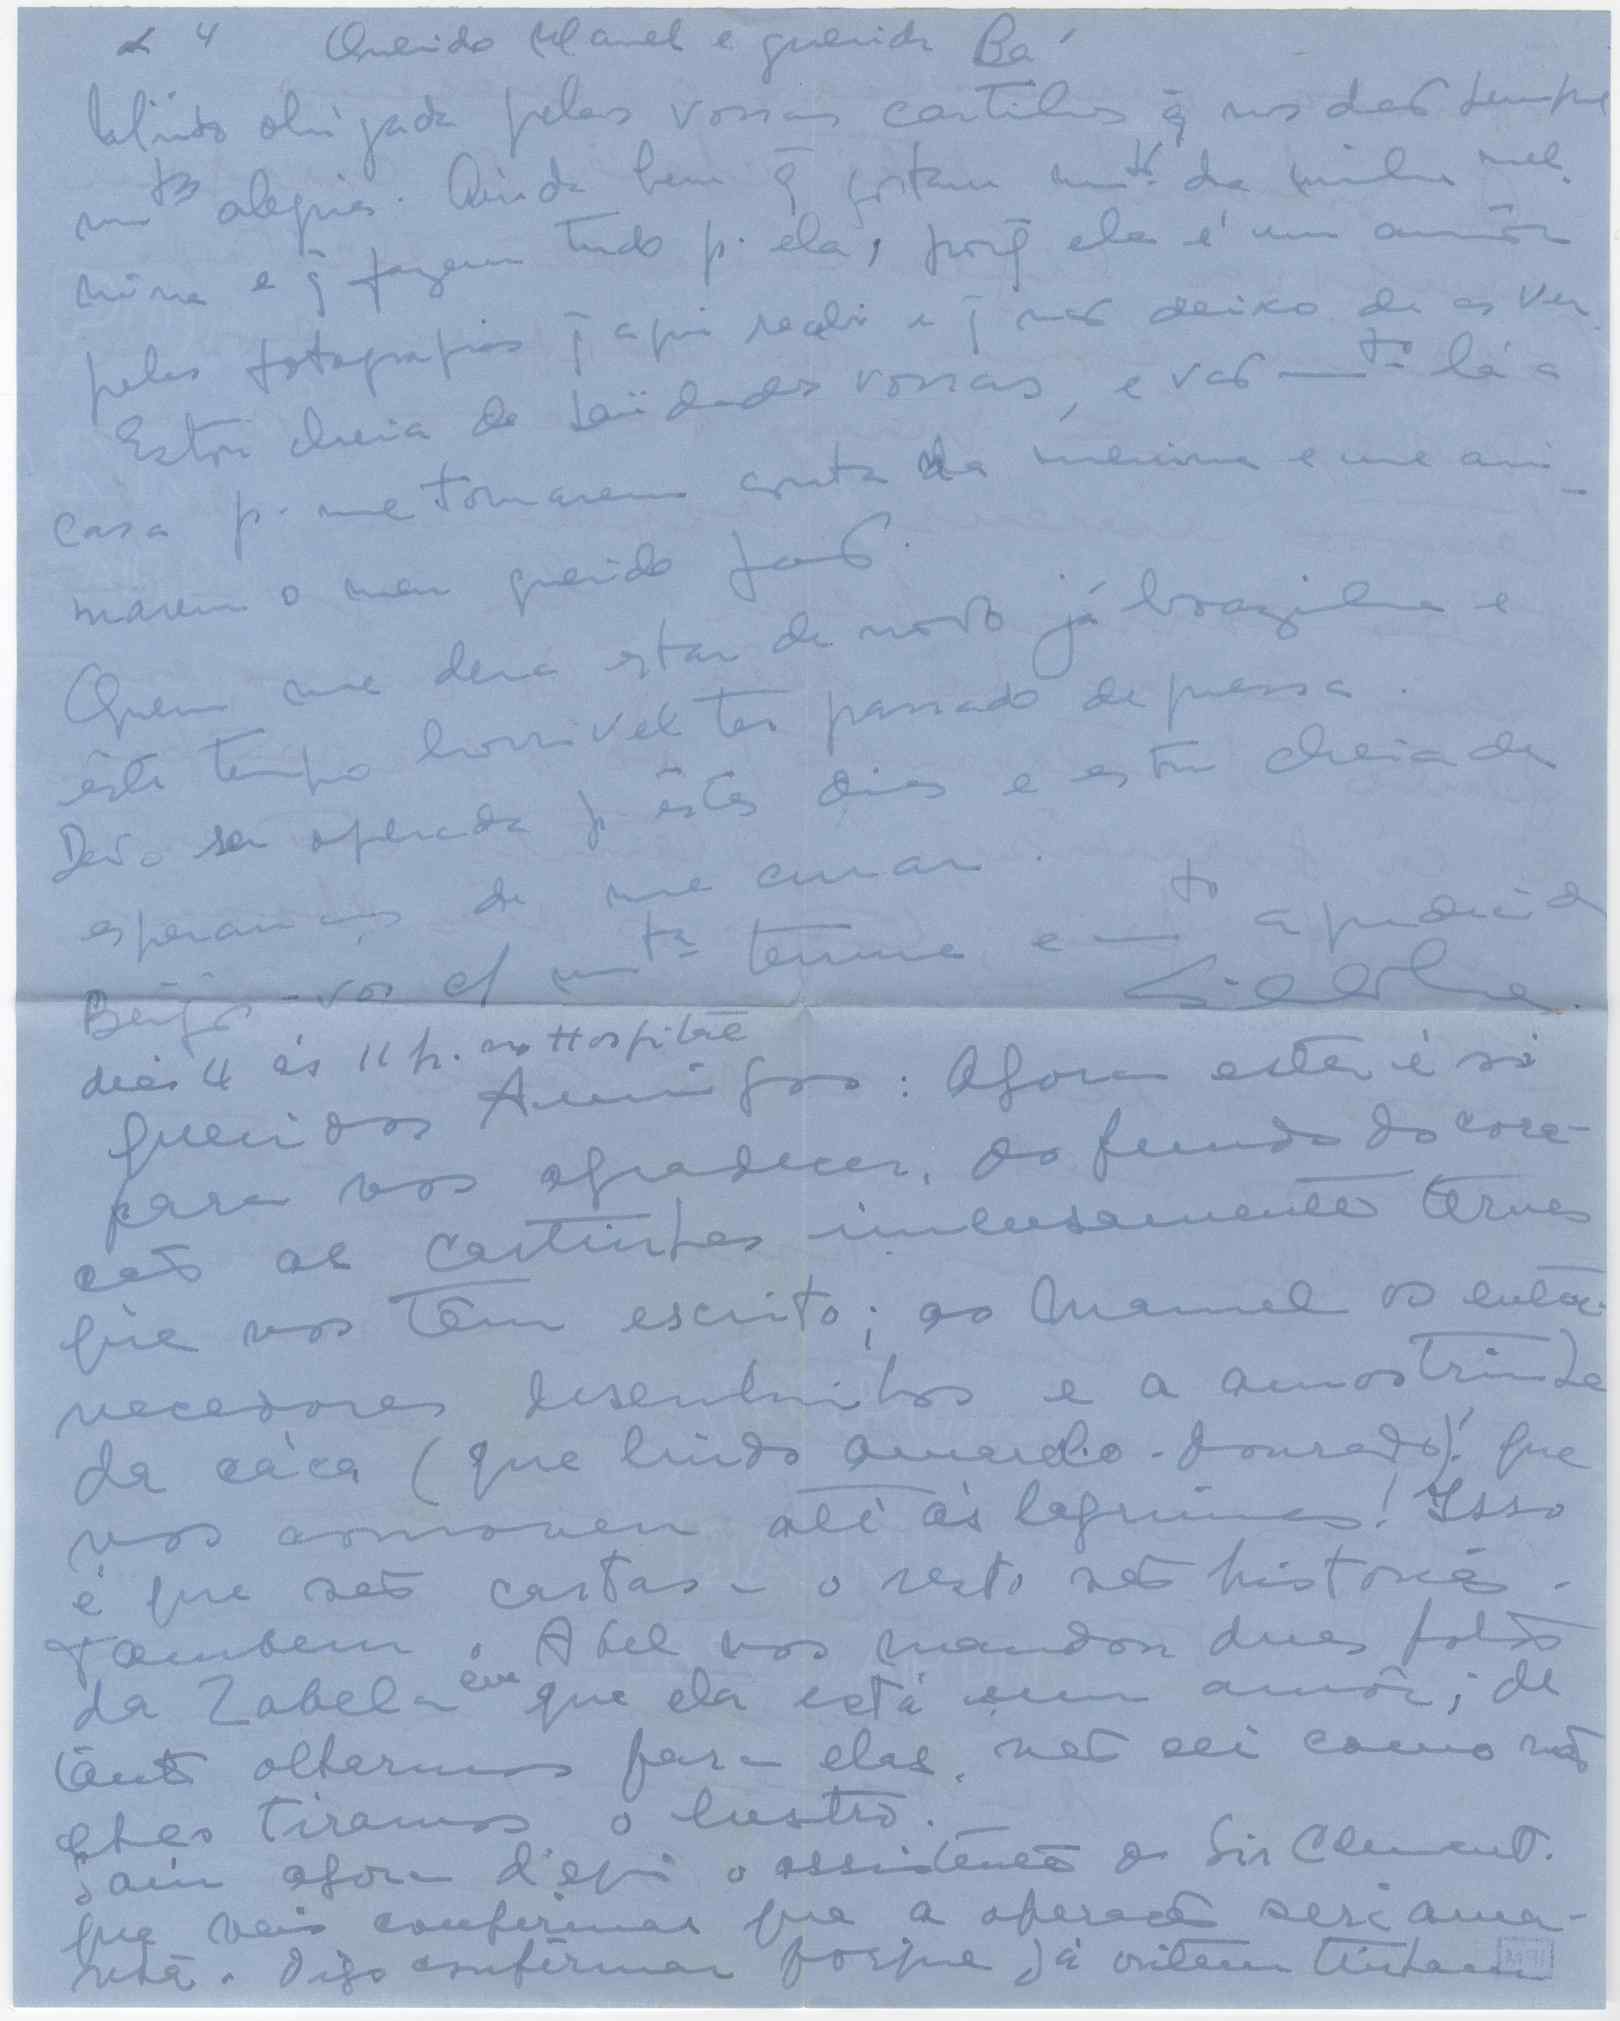 4 Querido Manel e querida Bá
Muito obrigada pelas vossas cartinhas q̃ nos dão sempre
mtª alegria. Ainda bem q̃ gostam mtº da minha me-
nina e q̃ fazem tudo p. ela, porq̃ ela é um amôr
pelas fotografias q̃ aqui recebi e q̃ não deixo de as ver.
Estou cheia de saüdades vossas, e vão mtº lá a
casa p. me tomarem conta da menina e me ani-
marem o meu querido João.
Quem me dera estar de novo já e
êste tempo horrivel ter passado depressa.
Devo ser operada p. êstes dias e estou cheia de
esperanças de me curar.
Beijo-vos c/ mtª ternura e mtº agradecida

dia 4 ás 11 h. no Hospital
Queridos Amigos: Agora esta é só
para vos agradecer, do fundo do cora-
ção as cartinhas imensamente ternas
que nos têm escrito; ao Manuel os enter-
necedores desenhinhos e a amostrinha
da cáca (que lindo amarelo-dourado)! que
nos comovem até ás lagrimas! Isso
é que são cartas - o resto são historias.
Tambem o Abel nos mandou duas fotos
da Zabela em que ela está um amôr; de
tanto olharmos para elas, não sei como não
lhes tiramos o lustro.
Saiu agora d'aqui o assistente do Sir Clement.
que veio confirmar que a operação será ama-
nhã. Digo confirmar porque já ontem tinham